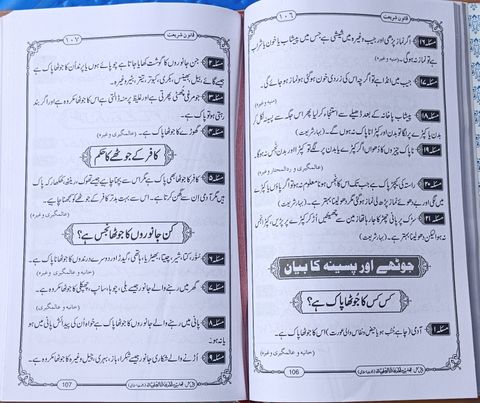 قانون شریعت ۱۰۶
مسئلہ ۱۶ اگر نماز پڑھی اور جیب وغیرہ میں شیشی ہے جس میں پیشاب یا خون یا شراب
ہے تو نماز نہ ہوگی۔
مسئلہ ۱۷ جیب میں انڈا ہے تو اگرچہ اس کی زردی خون ہوگئی ہو نماز ہو جائے گی۔
مسئلہ ۱۸ پیشاب پاخانہ کے بعد ڈھیلے سے استنجا کر لیا پھر اس جگہ سے پسینہ نکل کر
بدن یا کپڑے پر لگا تو بدن اور کپڑا ناپاک نہ ہوں گے۔ (بہار شریعت)
مسئلہ ۱۹ ناپاک چیزوں کا دھواں اگر کپڑے یا بدن پر لگے تو کپڑا اور بدن نجس نہ ہوگا۔
(عالمگیری و ردالمحتار وغیرہ)
مسئلہ ۲۰ راستہ کی کیچڑ پاک ہے جب تک اس کا نجس ہونا معلوم نہ ہو تو اگر پاؤں یا کپڑے
میں لگی اور بے دھوئے نماز پڑھ لی ہوگئی مگر دھو لینا بہتر ہے۔ (بہار شریعت)
مسئلہ ۲۱ سڑک پر پانی چھڑکا جا رہا تھا زمین سے چھینٹیں اُڑ کر کپڑے پر پڑیں کپڑا نجس
نہ ہوا لیکن دھونا بہتر ہے۔ (بہار شریعت)
جوٹھے اور پسینہ کا بیان
کس کس کا جوٹھا پاک ہے؟
مسئلہ ۱ آدمی (چاہے جنب ہو یا حیض و نفاس والی عورت) اس کا جوٹھا پاک ہے۔
(خانیہ و عالمگیری وغیرہ)
106
قانون شریعت ۱۰۷
مسئلہ ۲ جن جانوروں کا گوشت کھایا جاتا ہے چوپائے ہوں یا پرند اُن کا جوٹھا پاک ہے
جیسے گائے، بیل، بھینس، بکری، کبوتر، تیتر، بٹیر وغیرہ۔
مسئلہ ۳ جو مرغی چھٹی پھرتی ہے اور غلیظ پر منہ ڈالتی ہے اس کا جوٹھا مکروہ ہے اور اگر بند
رہتی ہو تو پاک ہے۔
مسئلہ ۴ گھوڑے کا جوٹھا پاک ہے۔ (عالمگیری وغیرہ)
کافر کے جوٹھے کا حکم
مسئلہ ۵ کافر کا جوٹھا بھی پاک ہے مگر اس سے بچنا چاہیے جیسے تھوک، رینٹھ، کھنکار کہ پاک
ہیں مگر آدمی ان سے گھن کرتا ہے۔ اس سے بہت بدتر کافر کے جوٹھے کو سمجھنا چاہیے۔
(عالمگیری وغیرہ)
کن جانوروں کا جوٹھا نجس ہے؟
مسئلہ ۶ سُوَر، کتا، شیر، چیتا، بھیڑیا، ہاتھی، گیدڑ اور دوسرے درندوں کا جوٹھا ناپاک ہے۔
(خانیہ و عالمگیری وغیرہ)
مسئلہ ۷ گھر میں رہنے والے جانور جیسے بلی، چوہا، سانپ، چھپکلی کا جوٹھا مکروہ ہے۔
(خانیہ و عالمگیری)
مسئلہ ۸ پانی میں رہنے والے جانور کا جوٹھا پاک ہے خواہ اُن کی پیدائش پانی میں ہو
یا نہ ہو۔
مسئلہ ۹ اُڑنے والے شکاری جانور جیسے شکرا، باز، بہری، چیل وغیرہ کا جوٹھا مکروہ ہے۔
107